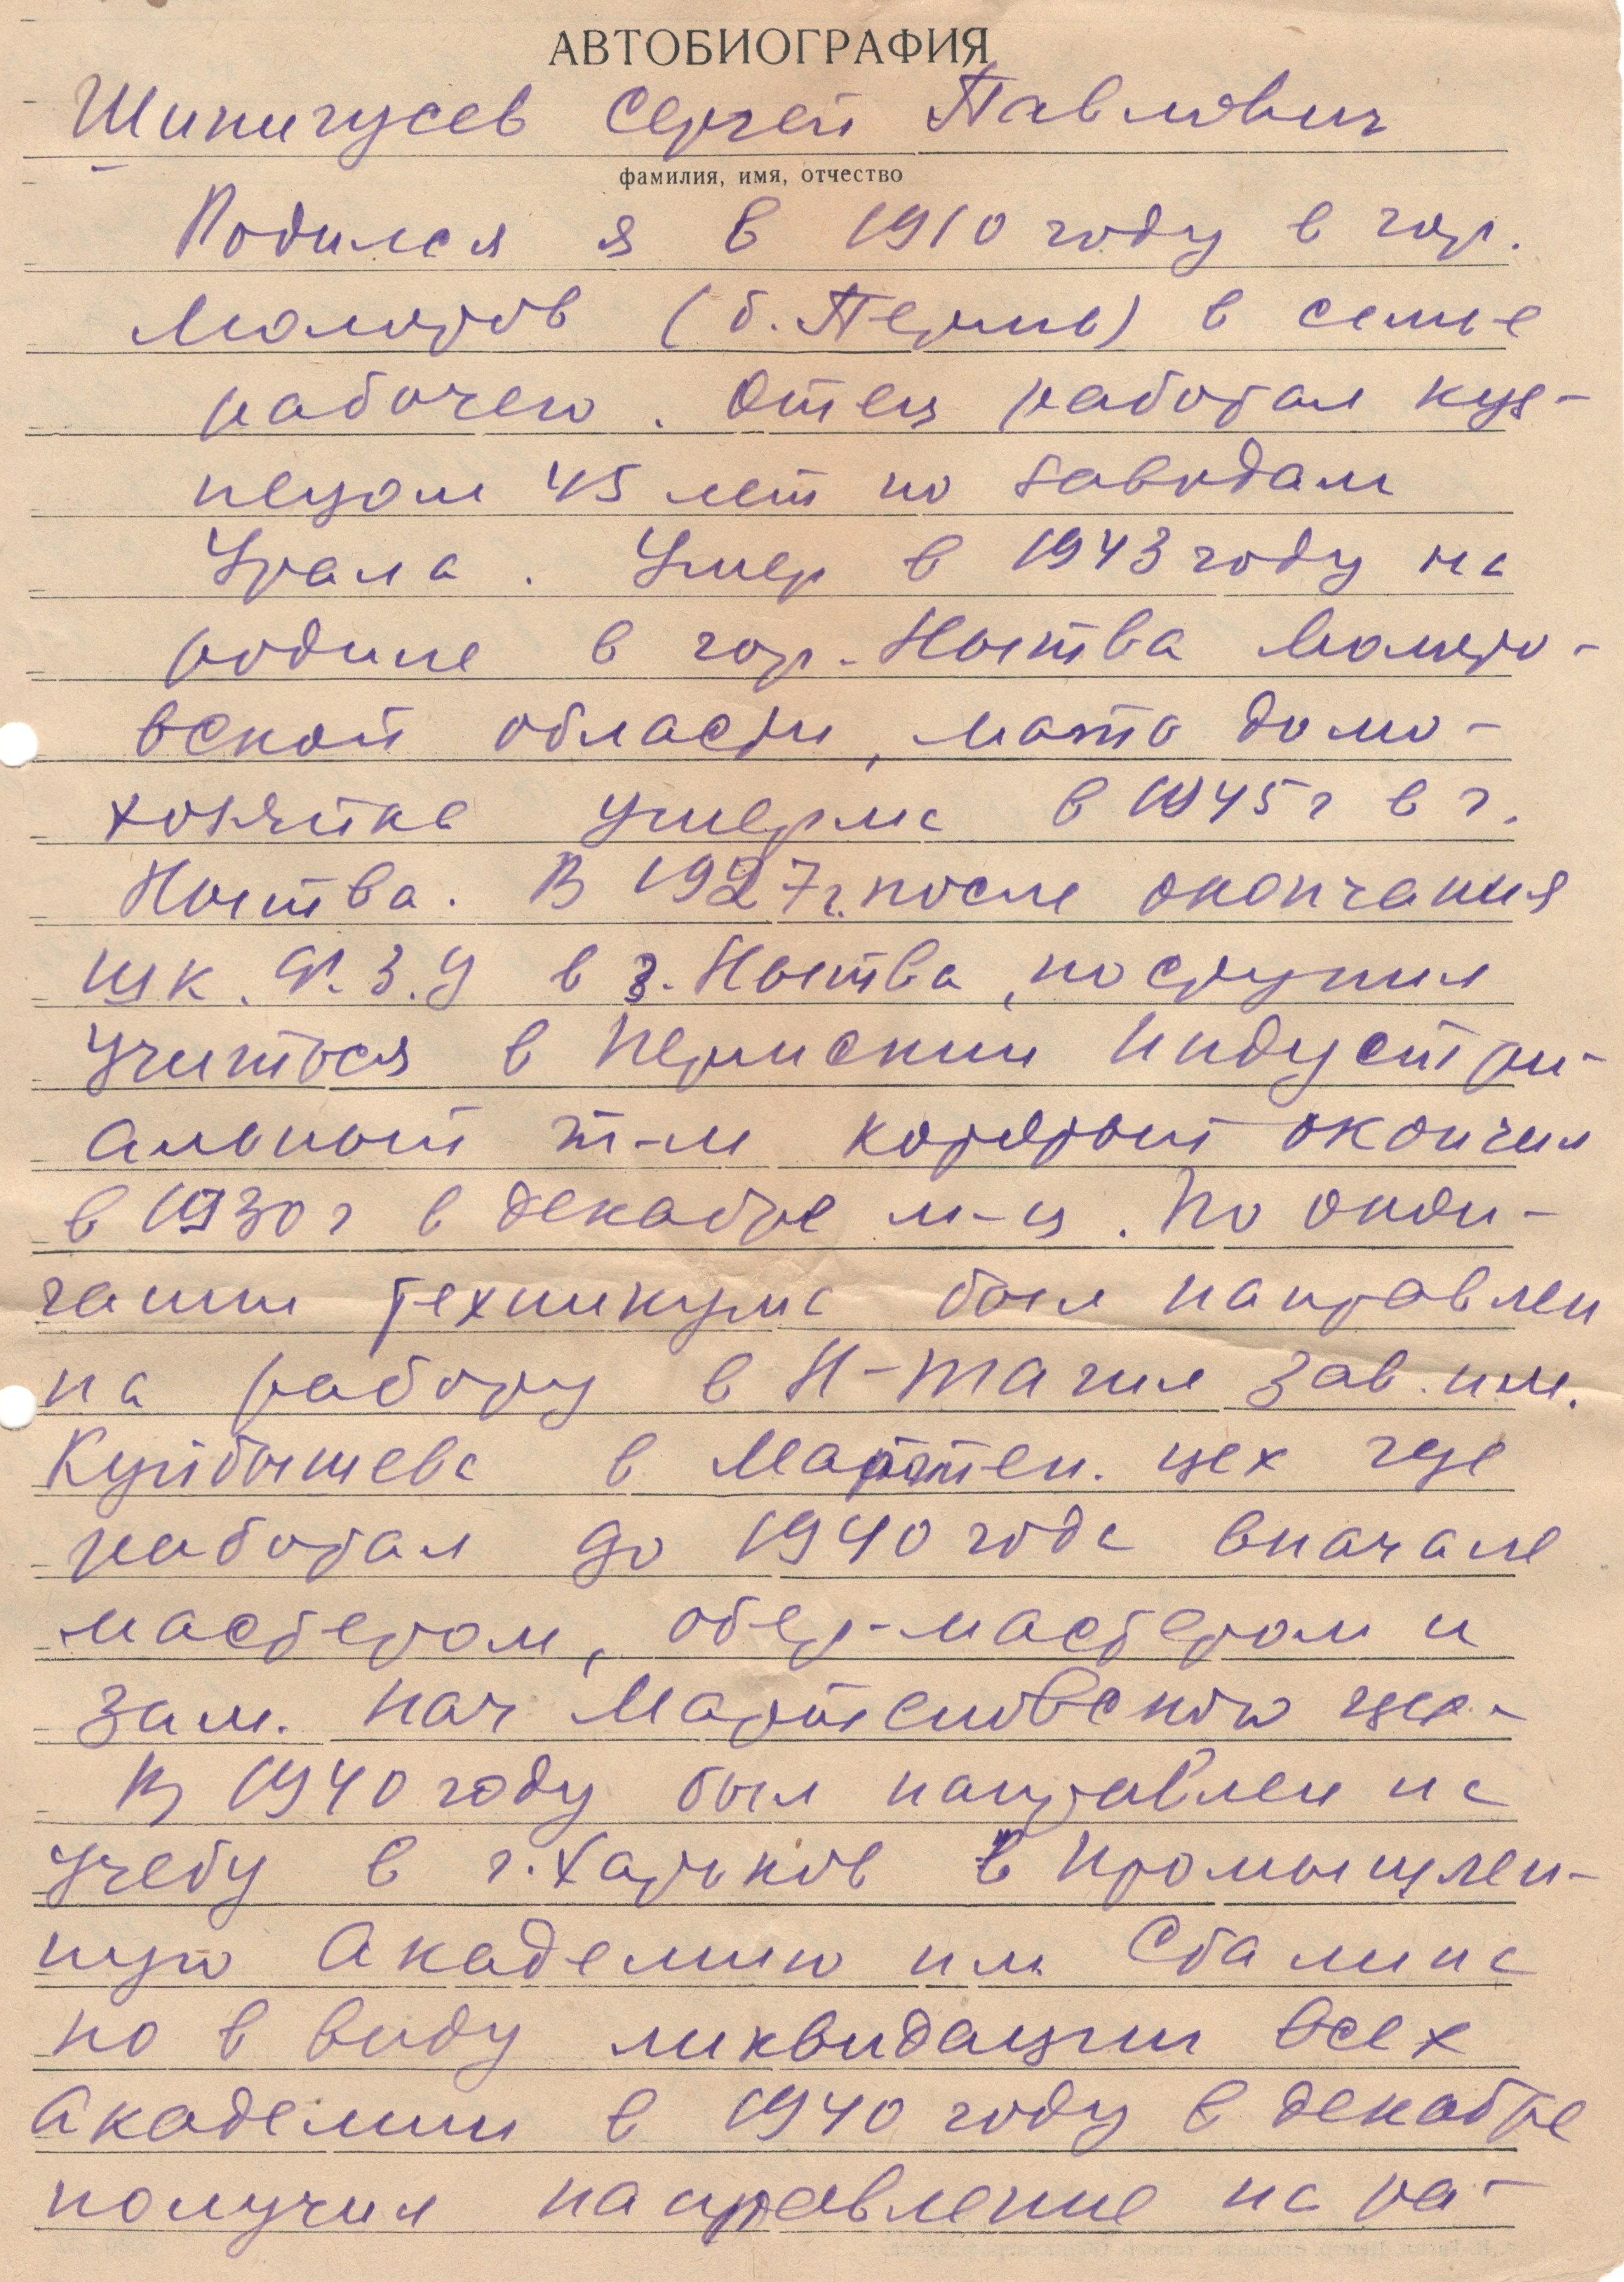 АВТОБИОГРАФИЯ
Шипигусев Сергей Павлович
фамилия, имя, отчество
Родился я в 1910 году в гор.
Молотов (б. Пермь) в семье
рабочего. Отец работал куз-
нецом 45 лет по заводам
Урала. Умер в 1943 году на
родине в гор. Нытва Молото-
вской области, мать домо-
хозяйка умерла в 1945 г в г.
Нытва. В 1927 г. после окончания
шк. Ф.З.У в г. Нытва, поступил
учиться в Пермский Индустри-
альный т-м который окончил
в 1930 г в декабре м-ц. По окон-
чании техникума был направлен
на работу в Н-Тагил зав. им.
Куйбышева в Мартен. цех где
работал до 1940 года вначале
мастером, обер-мастером и
зам. нач Мартеновского цеха
В 1940 году был направлен на
учебу в г. Харьков в Промышлен-
ную Академию им Сталина
но в виду ликвидации всех
Академии в 1940 году в декабре
получил направление на ра-